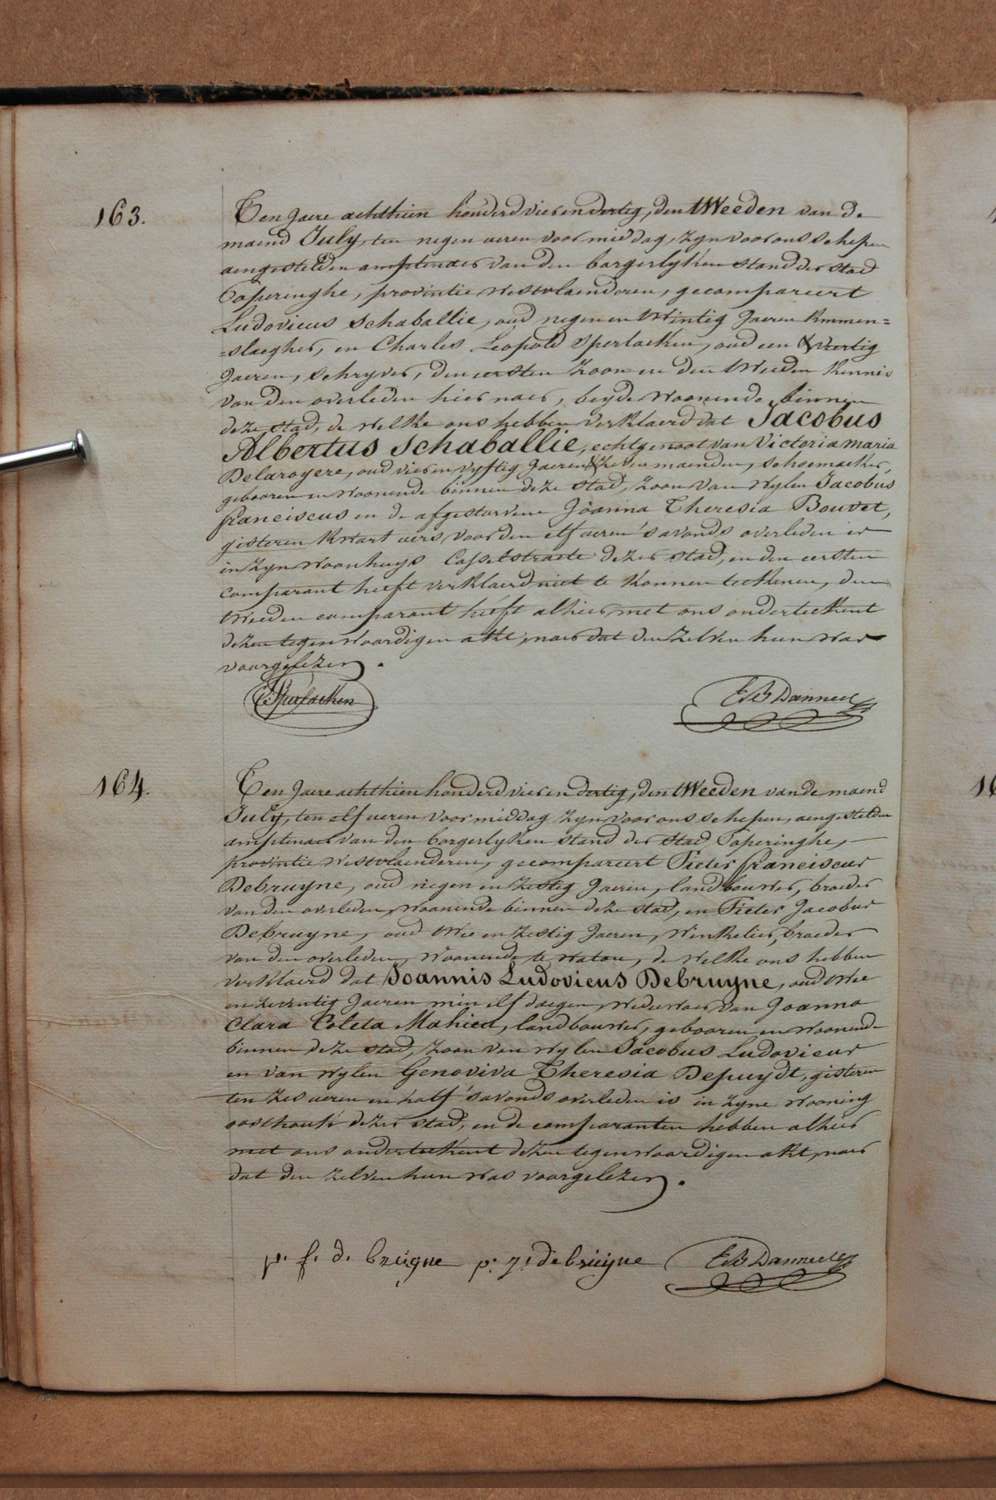 163.
Ten Jaere achthien honderd vier en dertig, den tWeeden van de
maend July, ten negen ueren voor middag, zyn voor ons schepen
aengestelden amptenaer van den borgerlyken stand der stad
Poperinghe, provintie westvlaenderen, gecompareert
Ludovicus Schaballie, oud negen en twintig Jaeren timmer=
=slaegher, en Charles Leopold Sperlaeken, oud een & Veertig
Jaeren, schryver, den eersten zoon en den tWeeden kennis
van den overleden hier naer, beyde Woonende binnen
deze stad, de welke ons hebben verklaerd dat Jacobus
Albertus Schaballie, echtgenoot van Victoria maria
Delaroyere, oud vier en vyftig Jaeren & zeven maenden, schoenmaeker,
gebooren en woonende binnen deze stad, zoon van wylen Jacobus
franciscus en de afgestorvene Joanna Theresia Bouvet,
gisteren kwart uers voor den elf ueren s'avonds overleden is
in zyn woonhuys Casselstraete dezer stad, en den eersten
comparant heeft verklaerd niet te konnen teekenen, den
tweeden comparant heeft alhier met ons onderteekent
dezen tegenwoordigen akt, naer dat den zelven hun was
voorgelezen.
Sperlaeken
E B Danneel
164.
Ten Jaere achthien honderd vier en dertig, den tWeeden van de maend
July, ten elf ueren voor middag zyn voor ons schepen, aengestelden
amptenaer van den borgerlyken stand der stad Poperinghe,
provintie westvlaenderen, gecompareert Pieter franciscus
Debruyne, oud negen en zestig Jaeren, landbouwer, broeder
van den overleden, woonende binnen deze stad, en Pieter Jacobus
Debruyne, oud twee en zestig Jaeren, Winkelier, broeder
van den overleden, woonende te watou, de welke ons hebben
verklaerd dat Joannis Ludovicus Debruyne, oud twee
en zeventig Jaeren min elf daegen, weduwaer van Joanna
Clara Coleta Mahieu, landbouwer, gebooren en woonende
binnen deze stad, zoon van wylen Jacobus Ludovicus
en van wylen Genoviva Theresia Depuydt, gisteren
ten zes ueren en half s'avonds overleden is in zyne wooning
oosthoek dezer stad, en de comparanten hebben alhier
met ons onderteekent dezen tegenwoordigen akt, naer
dat den zelven hun was voorgelezen.
p. f. de bruyne p. j. debruyne E B Danneel